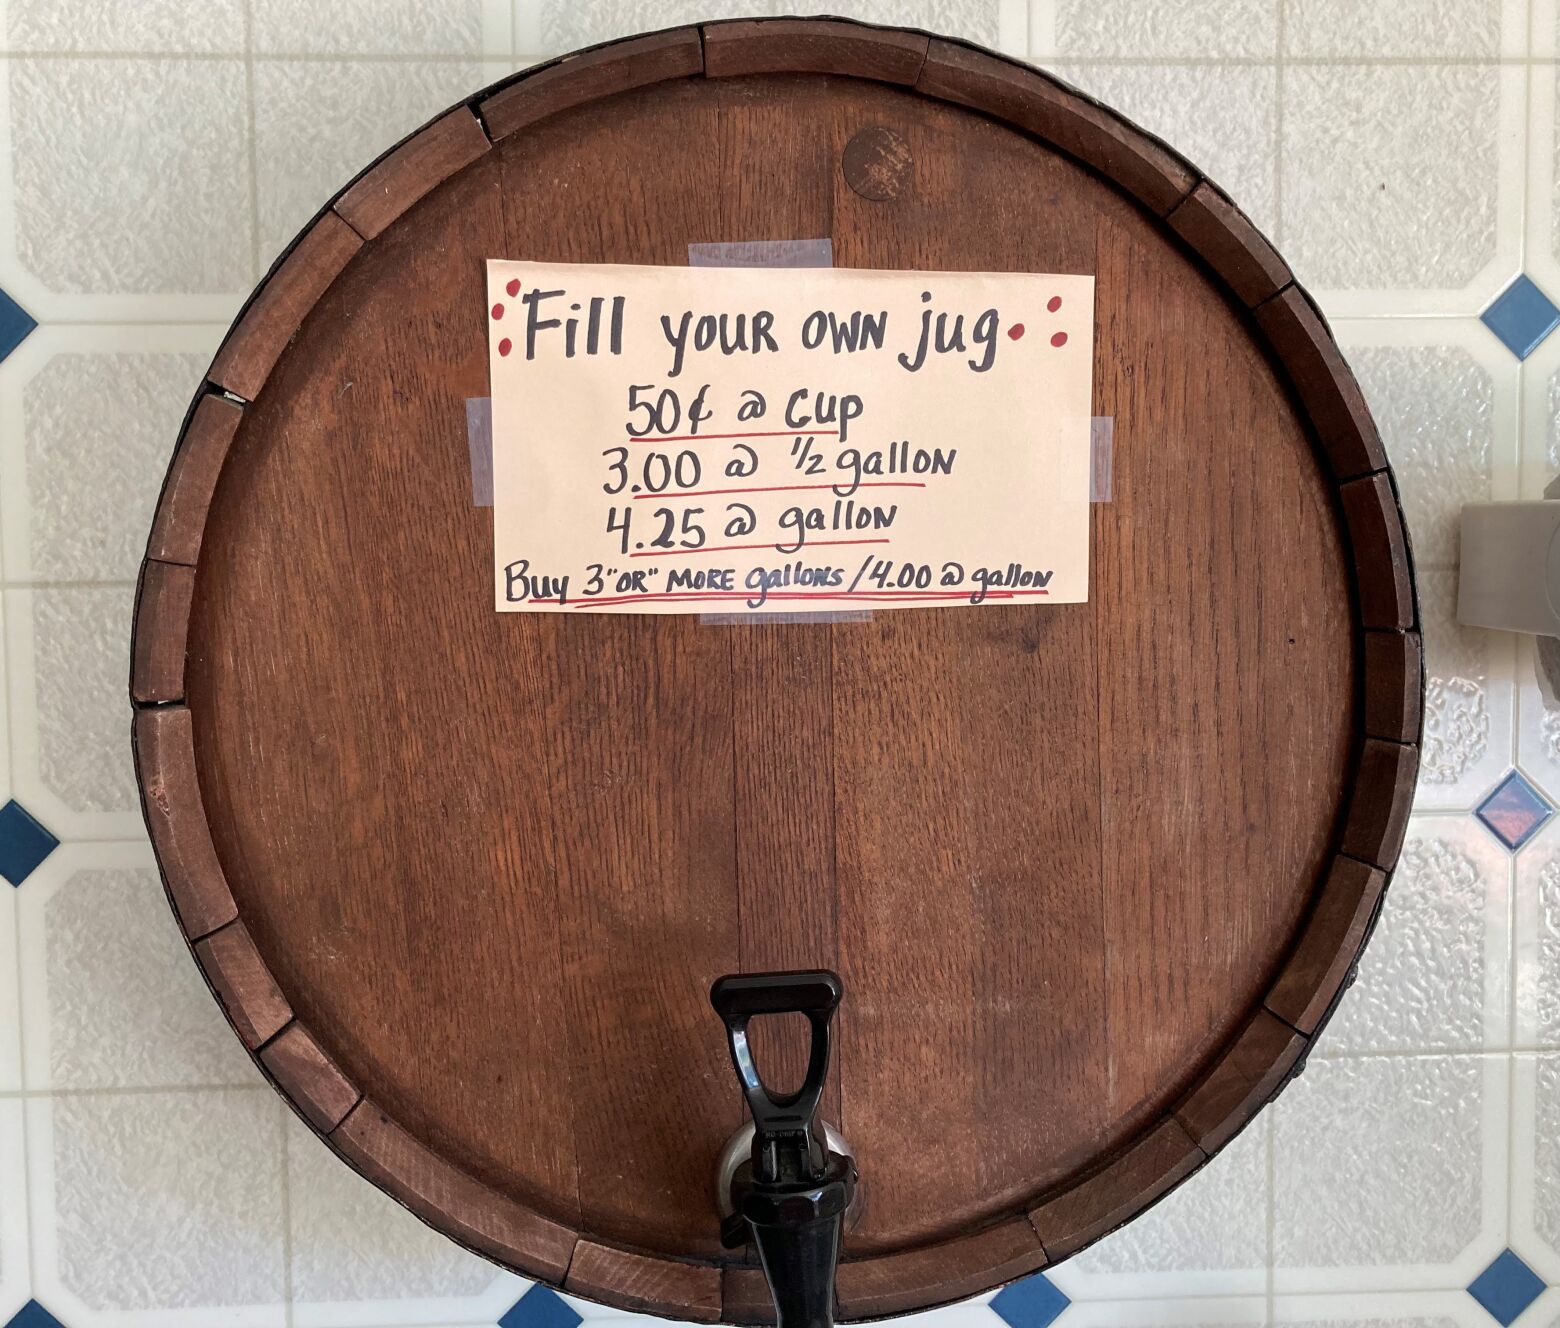 Fill your own jug
50¢ @ cup
3.00 @ 1/2 gallon
4.25 @ gallon
Buy 3 "OR" MORE gallons / 4.00 @ gallon